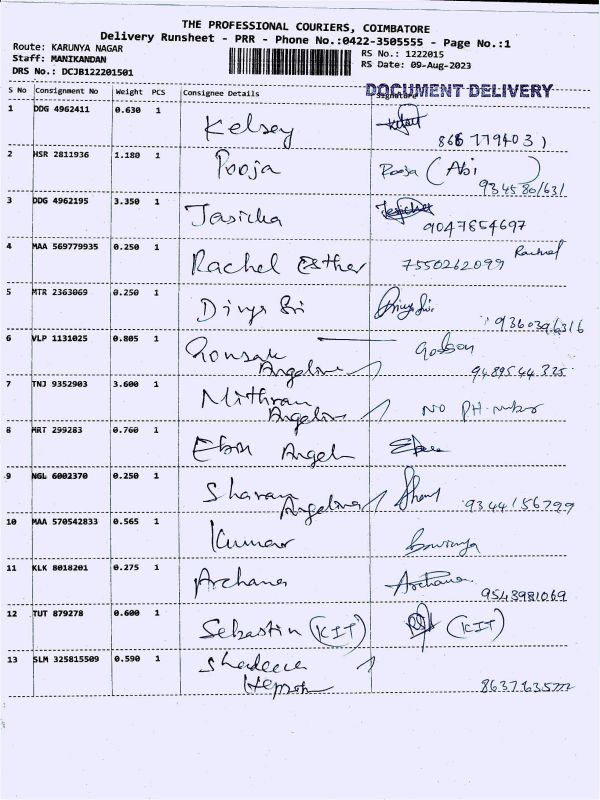 THE PROFESSIONAL COURIERS, COIMBATORE
Delivery Runsheet - PRR - Phone No.:0422-3505555 - Page No.:1
Route: KARUNYA NAGAR
Staff: MANIKANDAN
DRS No.: DCJB122201501
RS No.: 1222015
RS Date: 09-Aug-2023
S No Consignment No Weight PCS Consignee Details Signature
DOCUMENT DELIVERY
1 DDG 4962411 0.630 1 Kelsey
2 HSR 2811936 1.180 1 Pooja Pooja (Abi)
3 DDG 4962195 3.350 1 Jasicha
9047854697
4 MAA 569779935 0.250 1 Rachel Esther 7550262099 Rachel
5 MTR 2363069 0.250 1 Divya Sri
6 VLP 1131025 0.805 1
Angeline
7 TNJ 9352903 3.600 1 Mithran
Angeline NO PH.number
8 MRT 299283 0.760 1 Ebin Angel
9 NGL 6002370 0.250 1 Sharan
Angelina 9344156799
10 MAA 570542833 0.565 1 Kumar
11 KLK 8018201 0.275 1 Archana Archana
9543981069
12 TUT 879278 0.600 1 Sebastin (KIT) (KIT)
13 SLM 325815509 0.590 1